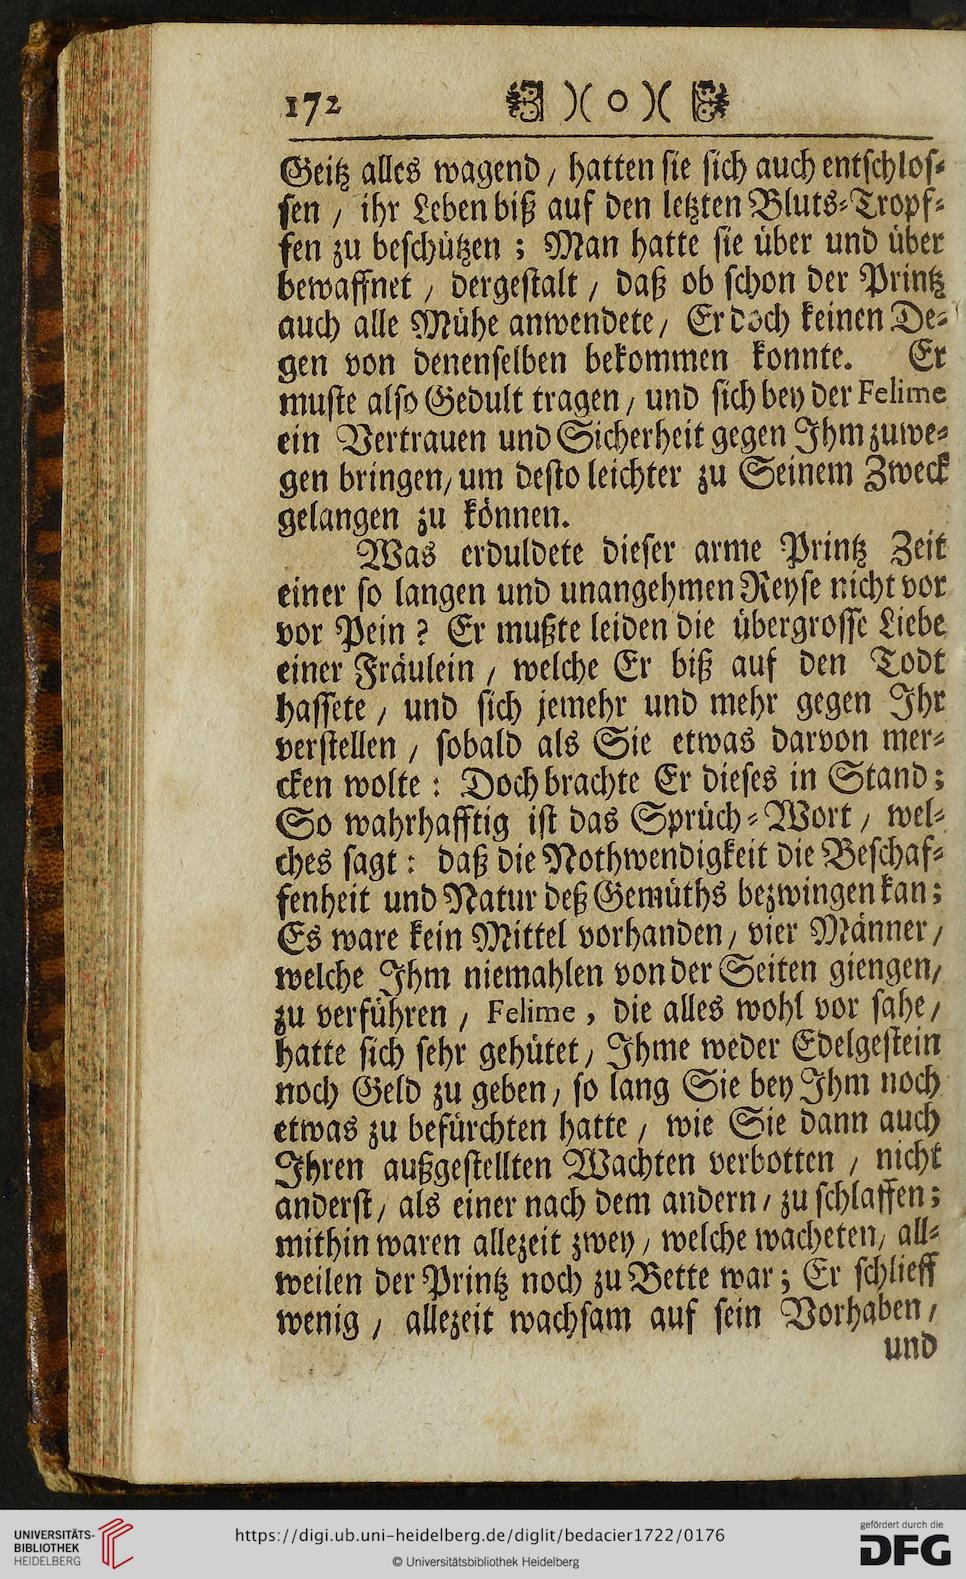 172 )( o )(
Geitz alles wagend / hatten sie sich auch entschlos-
sen / ihr Leben biß auf den letzten Bluts-Tropf-
fen zu beschützen ; Man hatte sie über und über
bewaffnet / dergestalt / daß ob schon der Printz
auch alle Mühe anwendete / Er doch keinen De-
gen von denenselben bekommen konnte. Er
muste also Gedult tragen / und sich bey der Felime
ein Vertrauen und Sicherheit gegen Ihm zuwe-
gen bringen / um desto leichter zu Seinem Zweck
gelangen zu können.
Was erduldete dieser arme Printz Zeit
einer so langen und unangehmen Reyse nicht vor
vor Pein ? Er mußte leiden die übergrosse Liebe
einer Fräulein / welche Er biß auf den Todt
hassete / und sich jemehr und mehr gegen Ihr
verstellen / sobald als Sie etwas darvon mer-
cken wolte : Doch brachte Er dieses in Stand ;
So wahrhafftig ist das Sprüch-Wort / wel-
ches sagt : daß die Nothwendigkeit die Beschaf-
fenheit und Natur deß Gemüths bezwingen kan ;
Es ware kein Mittel vorhanden / vier Männer /
welche Ihm niemahlen von der Seiten giengen /
zu verführen / Felime , die alles wohl vor sahe /
hatte sich sehr gehütet / Ihme weder Edelgestein
noch Geld zu geben / so lang Sie bey Ihm noch
etwas zu befürchten hatte / wie Sie dann auch
Ihren außgestellten Wachten verbotten / nicht
anderst / als einer nach dem andern / zu schlaffen ;
mithin waren allezeit zwey / welche wacheten / all-
weilen der Printz noch zu Bette war ; Er schlieff
wenig / allezeit wachsam auf sein Vorhaben /
und
UNIVERSITÄTS-
BIBLIOTHEK
HEIDELBERG
https://digi.ub.uni-heidelberg.de/diglit/bedacier1722/0176
© Universitätsbibliothek Heidelberg
gefördert durch die
DFG